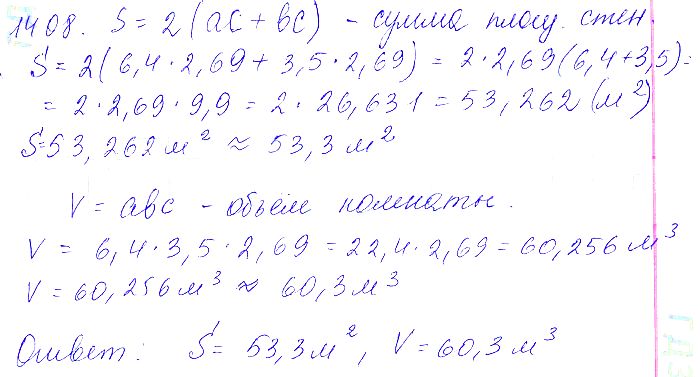 1408. S = 2(ac + bc) - сумма площ. стен.
S = 2(6,4 · 2,69 + 3,5 · 2,69) = 2 · 2,69(6,4+3,5) =
= 2 · 2,69 · 9,9 = 2 · 26,631 = 53,262 (м²)
S=53,262 м² ≈ 53,3 м²
V = abc - объём комнаты.
V = 6,4 · 3,5 · 2,69 = 22,4 · 2,69 = 60,256 м³
V = 60,256 м³ ≈ 60,3 м³
Ответ: S = 53,3 м², V = 60,3 м³